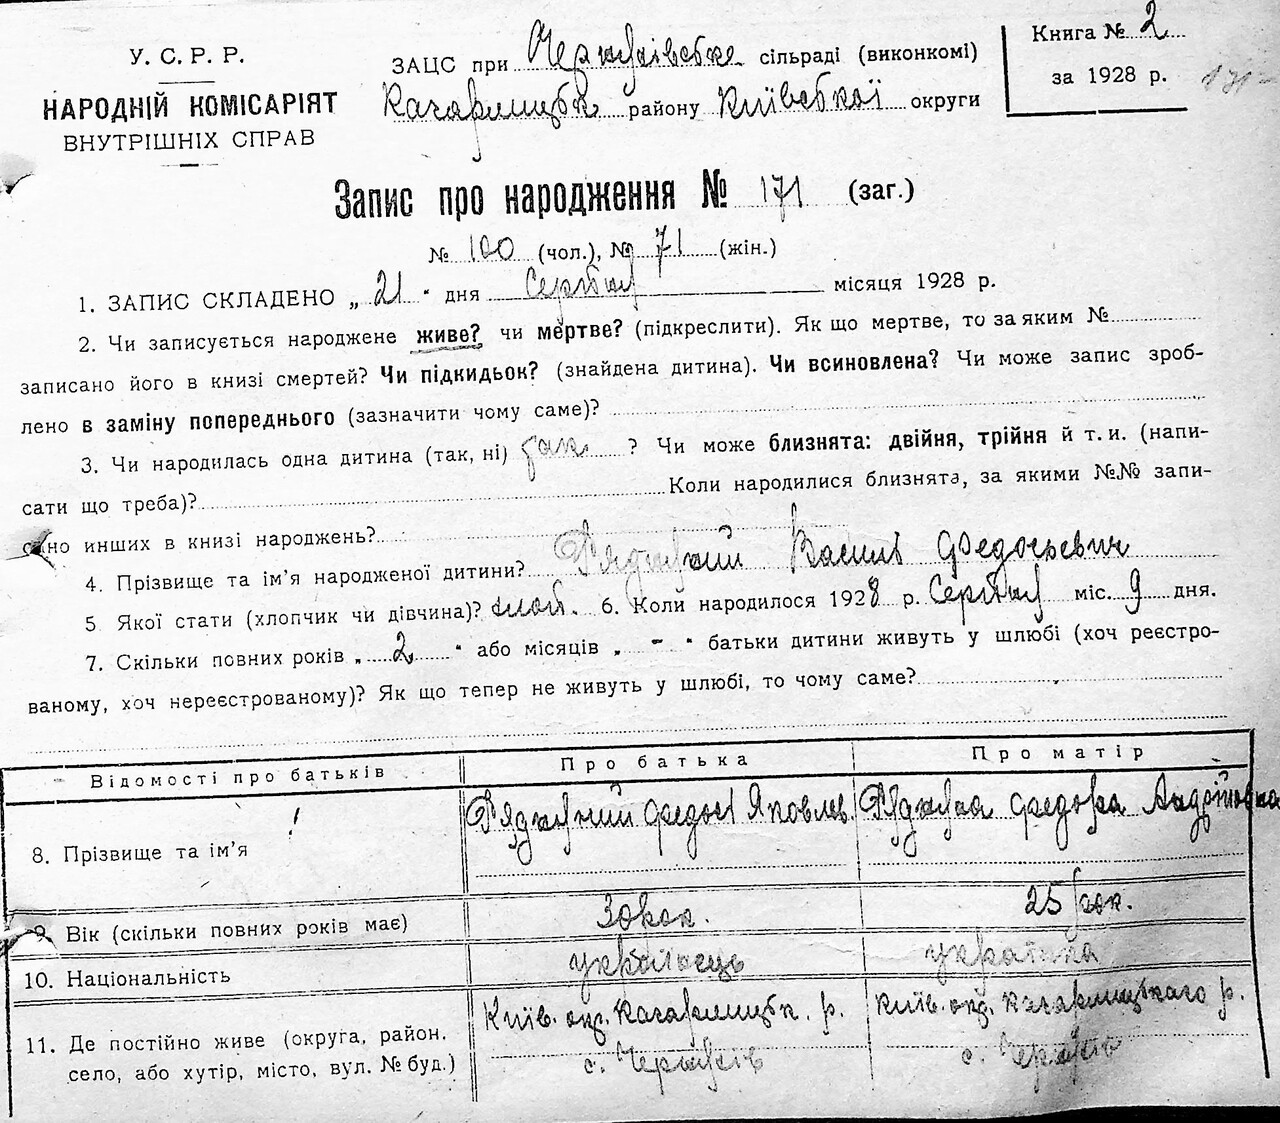 У. С. Р. Р.
НАРОДНІЙ КОМІСАРІЯТ
ВНУТРІШНІХ СПРАВ
ЗАЦС при сільраді (виконкомі)
Кагарлицьк. району Київської округи
Книга № 2
за 1928 р.
171
Запис про народження № 171 (заг.)
№ 100 (чол.), № 71 (жін.)
1. ЗАПИС СКЛАДЕНО „ 21 " дня Серпня місяця 1928 р.
2. Чи записується народжене живе? чи мертве? (підкреслити). Як що мертве, то за яким №
записано його в книзі смертей? Чи підкидьок? (знайдена дитина). Чи всиновлена? Чи може запис зроб-
лено в заміну попереднього (зазначити чому саме)?
3. Чи народилась одна дитина (так, ні) так ? Чи може близнята: двійня, трійня й т. и. (напи-
сати що треба)? Коли народилися близнята, за якими №№ запи-
сано инших в книзі народжень?
4. Прізвище та ім'я народженої дитини? Василь Федосьевич
5 Якої стати (хлопчик чи дівчина)? хлоп. 6. Коли народилося 1928 р. Серпня міс. 9 дня.
7. Скільки повних років „ 2 " або місяців „ - " батьки дитини живуть у шлюбі (хоч реєстро-
ваному, хоч нереєстрованому)? Як що тепер не живуть у шлюбі, то чому саме?
Відомості про батьків Про батька Про матір
8. Прізвище та ім'я Федось Яковлев.
9. Вік (скільки повних років має) 30 рок. 25 рок.
10. Національність українець українка
11. Де постійно живе (округа, район, Київ. окр. Кагарлицьк. р. Київ. окр. Кагарлицького р.
село, або хутір, місто, вул. № буд.) с. с.